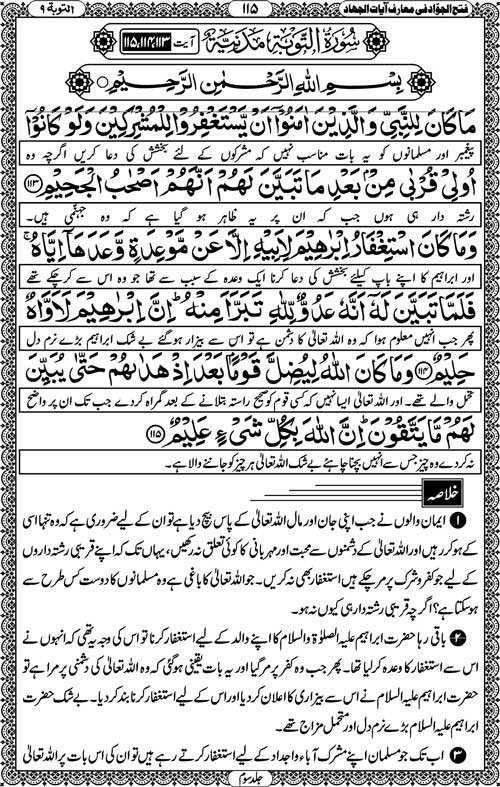 فتح الجوّاد فی معارف آیات الجهاد ۱۱۵ التوبة ۹
سُوْرَةُ التَّوْبَةِ مَدَنِيَّةٌ آیت ۱۱۵،۱۱۴،۱۱۳
بِسْمِ اللهِ الرَّحْمٰنِ الرَّحِيْمِ
مَا كَانَ لِلنَّبِيِّ وَالَّذِيْنَ اٰمَنُوْۤا اَنْ يَّسْتَغْفِرُوْا لِلْمُشْرِكِيْنَ وَلَوْ كَانُوْۤا
پیغمبر اور مسلمانوں کو یہ بات مناسب نہیں کہ مشرکوں کے لئے بخشش کی دعا کریں اگرچہ وہ
اُولِيْ قُرْبٰى مِنْۢ بَعْدِ مَا تَبَيَّنَ لَهُمْ اَنَّهُمْ اَصْحٰبُ الْجَحِيْمِ ۱۱۳
رشتہ دار ہی ہوں جب کہ ان پر یہ ظاہر ہو گیا ہے کہ وہ جہنّمی ہیں۔
وَمَا كَانَ اسْتِغْفَارُ اِبْرٰهِيْمَ لِاَبِيْهِ اِلَّا عَنْ مَّوْعِدَةٍ وَّعَدَهَاۤ اِيَّاهُ ۚ
اور ابراہیم کا اپنے باپ کیلئے بخشش کی دعا کرنا ایک وعدہ کے سبب سے تھا جو وہ اس سے کر چکے تھے
فَلَمَّا تَبَيَّنَ لَهٗۤ اَنَّهٗ عَدُوٌّ لِّلّٰهِ تَبَرَّاَ مِنْهُ ؕ اِنَّ اِبْرٰهِيْمَ لَاَوَّاهٌ
پھر جب انہیں معلوم ہوا کہ وہ اللہ تعالیٰ کا دشمن ہے تو اس سے بیزار ہو گئے بے شک ابراہیم بڑے نرم دل
حَلِيْمٌ ۱۱۴ وَمَا كَانَ اللهُ لِيُضِلَّ قَوْمًۢا بَعْدَ اِذْ هَدٰىهُمْ حَتّٰى يُبَيِّنَ
تحمل والے تھے۔ اور اللہ تعالیٰ ایسا نہیں کہ کسی قوم کو صحیح راستہ بتلانے کے بعد گمراہ کر دے جب تک ان پر واضح
لَهُمْ مَّا يَتَّقُوْنَ ؕ اِنَّ اللهَ بِكُلِّ شَيْءٍ عَلِيْمٌ ۱۱۵
نہ کر دے وہ چیز جس سے انہیں بچنا چاہئے بے شک اللہ تعالیٰ ہر چیز کو جاننے والا ہے۔
خلاصہ
۱ ایمان والوں نے جب اپنی جان اور مال اللہ تعالیٰ کے پاس بیچ دیا ہے تو ان کے لیے ضروری ہے کہ وہ تنہا اسی
کے ہو کر رہیں اور اللہ تعالیٰ کے دشمنوں سے محبت اور مہربانی کا کوئی تعلق نہ رکھیں، یہاں تک کہ اپنے قریبی رشتہ داروں
کے لیے جو کفر و شرک پر مر چکے ہیں استغفار بھی نہ کریں۔ جو اللہ تعالیٰ کا باغی ہے وہ مسلمانوں کا دوست کس طرح سے
ہو سکتا ہے؟ اگرچہ قریبی رشتہ دار ہی کیوں نہ ہو۔
۲ باقی رہا حضرت ابراہیم علیہ الصلوٰۃ والسلام کا اپنے والد کے لیے استغفار کرنا تو اس کی وجہ یہ تھی کہ انہوں نے
اس سے استغفار کا وعدہ کر لیا تھا۔ پھر جب وہ کفر پر مر گیا اور یہ بات یقینی ہو گئی کہ وہ اللہ تعالیٰ کی دشمنی پر مرا ہے تو
حضرت ابراہیم علیہ السلام نے اس سے بیزاری کا اعلان کر دیا اور اس کے لیے استغفار کرنا بند کر دیا۔ بے شک حضرت
ابراہیم علیہ السلام بڑے نرم دل اور متحمل مزاج تھے۔
۳ اب تک جو مسلمان اپنے مشرک آباء و اجداد کے لیے استغفار کرتے رہے ہیں تو ان کی اس بات پر اللہ تعالیٰ
جلد سوم